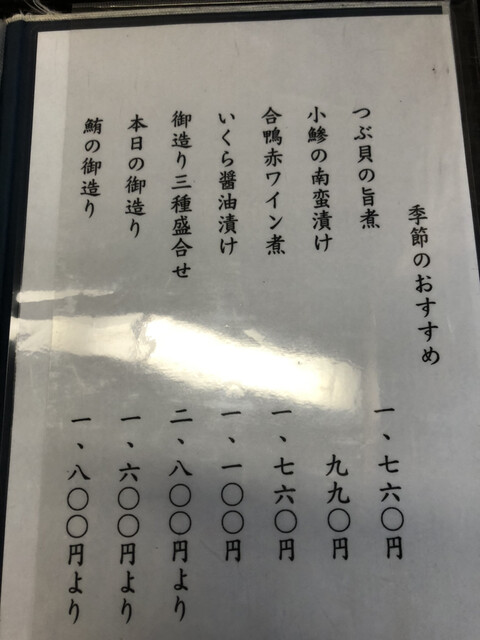 季節のおすすめ
つぶ貝の旨煮 一、七六〇円
小鯵の南蛮漬け 九九〇円
合鴨赤ワイン煮 一、七六〇円
いくら醤油漬け 一、一〇〇円
御造り三種盛合せ 二、八〇〇円より
本日の御造り 一、六〇〇円より
鮪の御造り 一、八〇〇円より